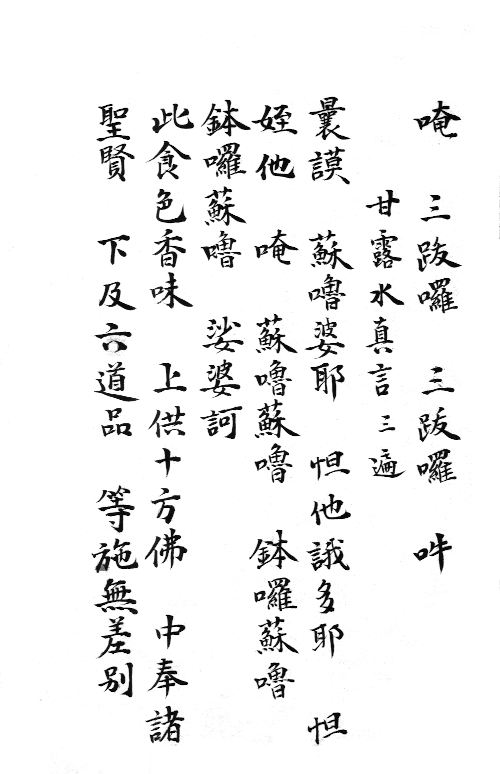 唵　三跋囉　三跋囉　吽
甘露水真言 三遍
曩謨　蘇嚕婆耶　怛他誐多耶　怛
姪他　唵　蘇嚕蘇嚕　鉢囉蘇嚕
鉢囉蘇嚕　娑婆訶
此食色香味　上供十方佛　中奉諸
聖賢　下及六道品　等施無差別